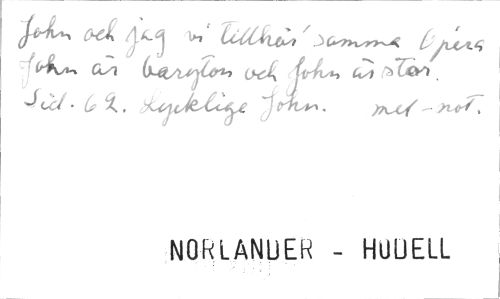 John och jag vi tillhör samma Opera
John är baryton och John är stor.
Sid. 62. Lycklige John. mel-not.
NORLANDER - HODELL